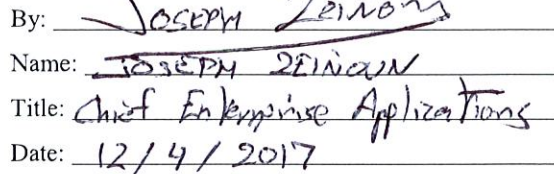 By: JOSEPH ZEINOUN
Name: JOSEPH ZEINOUN
Title: Chief Enterprise Applications
Date: 12/4/2017